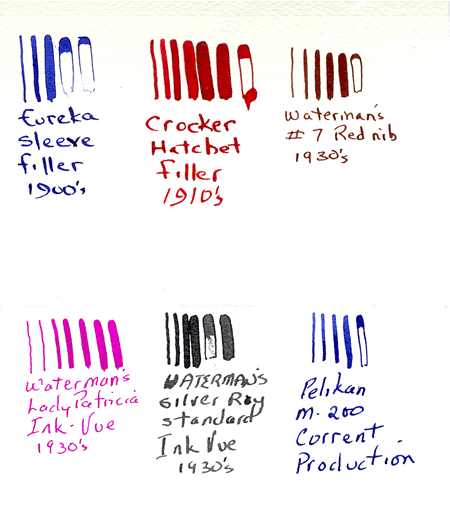 Eureka
Sleeve
filler
1900's
Crocker
Hatchet
Filler
1910's
Waterman's
# 7 Red nib
1930's
Waterman's
Lady Patricia
Ink-Vue
1930's
WATERMAN'S
Silver Ray
Standard
Ink Vue
1930's
Pelikan
M-200
Current
Production